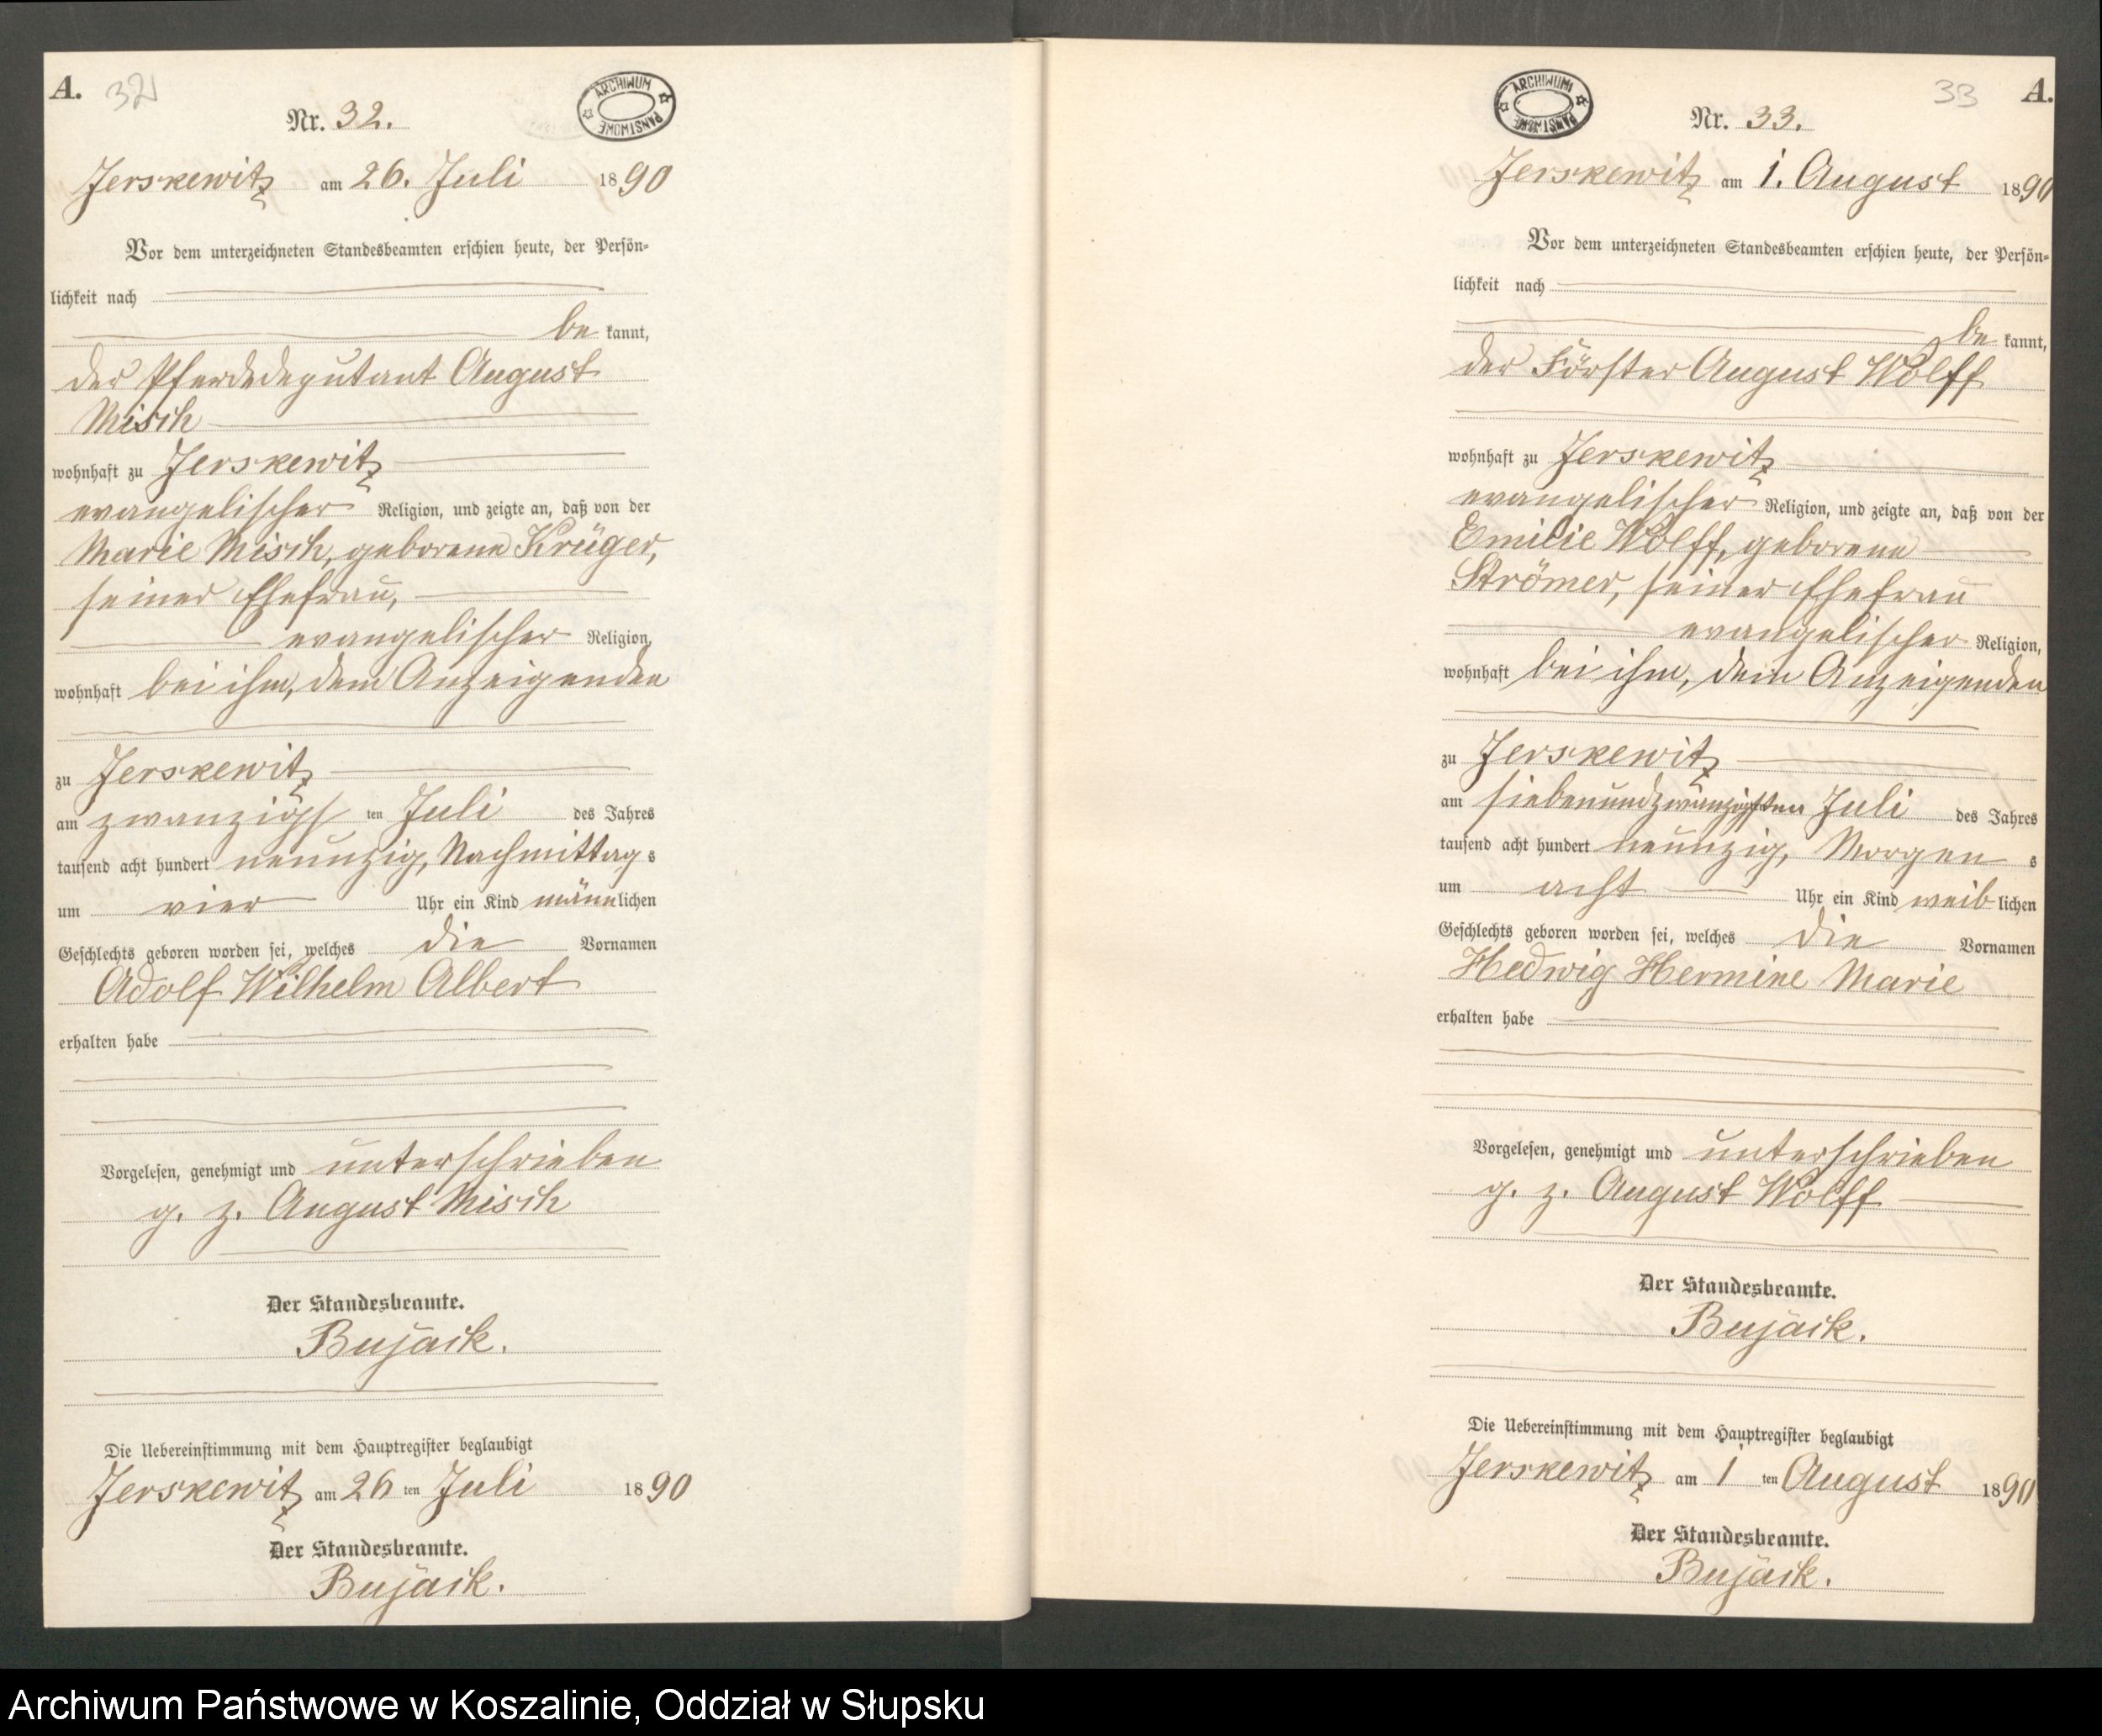 A. 32
Nr. 32.
ARCHIWUM PAŃSTWOWE
Jerskewitz am 26. Juli 1890
Vor dem unterzeichneten Standesbeamten erschien heute, der Persön-
lichkeit nach
be kannt,
der Pferdedeputant August
Misch
wohnhaft zu Jerskewitz
evangelischer Religion, und zeigte an, daß von der
Marie Misch, geborene Krüger,
seiner Ehefrau,
evangelischer Religion,
wohnhaft bei ihm, dem Anzeigenden
zu Jerskewitz
am zwanzigst ten Juli des Jahres
tausend acht hundert neunzig, Nachmittag s
um vier Uhr ein Kind männlichen
Geschlechts geboren worden sei, welches die Vornamen
Adolf Wilhelm Albert
erhalten habe
Vorgelesen, genehmigt und unterschrieben
g. z. August Misch
Der Standesbeamte.
Bujack.
Die Uebereinstimmung mit dem Hauptregister beglaubigt
Jerskewitz am 26 ten Juli 1890
Der Standesbeamte.
Bujack.
33 A.
Nr. 33.
ARCHIWUM PAŃSTWOWE
Jerskewitz am 1. August 1890
Vor dem unterzeichneten Standesbeamten erschien heute, der Persön-
lichkeit nach
be kannt,
der Förster August Wolff
wohnhaft zu Jerskewitz
evangelischer Religion, und zeigte an, daß von der
Emilie Wolff, geborene
Strömer, seiner Ehefrau
evangelischer Religion,
wohnhaft bei ihm, dem Anzeigenden
zu Jerskewitz
am siebenundzwanzigsten Juli des Jahres
tausend acht hundert neunzig, Morgen s
um acht Uhr ein Kind weiblichen
Geschlechts geboren worden sei, welches die Vornamen
Hedwig Hermine Marie
erhalten habe
Vorgelesen, genehmigt und unterschrieben
g. z. August Wolff
Der Standesbeamte.
Bujack.
Die Uebereinstimmung mit dem Hauptregister beglaubigt
Jerskewitz am 1 ten August 1890
Der Standesbeamte.
Bujack.
Archiwum Państwowe w Koszalinie, Oddział w Słupsku